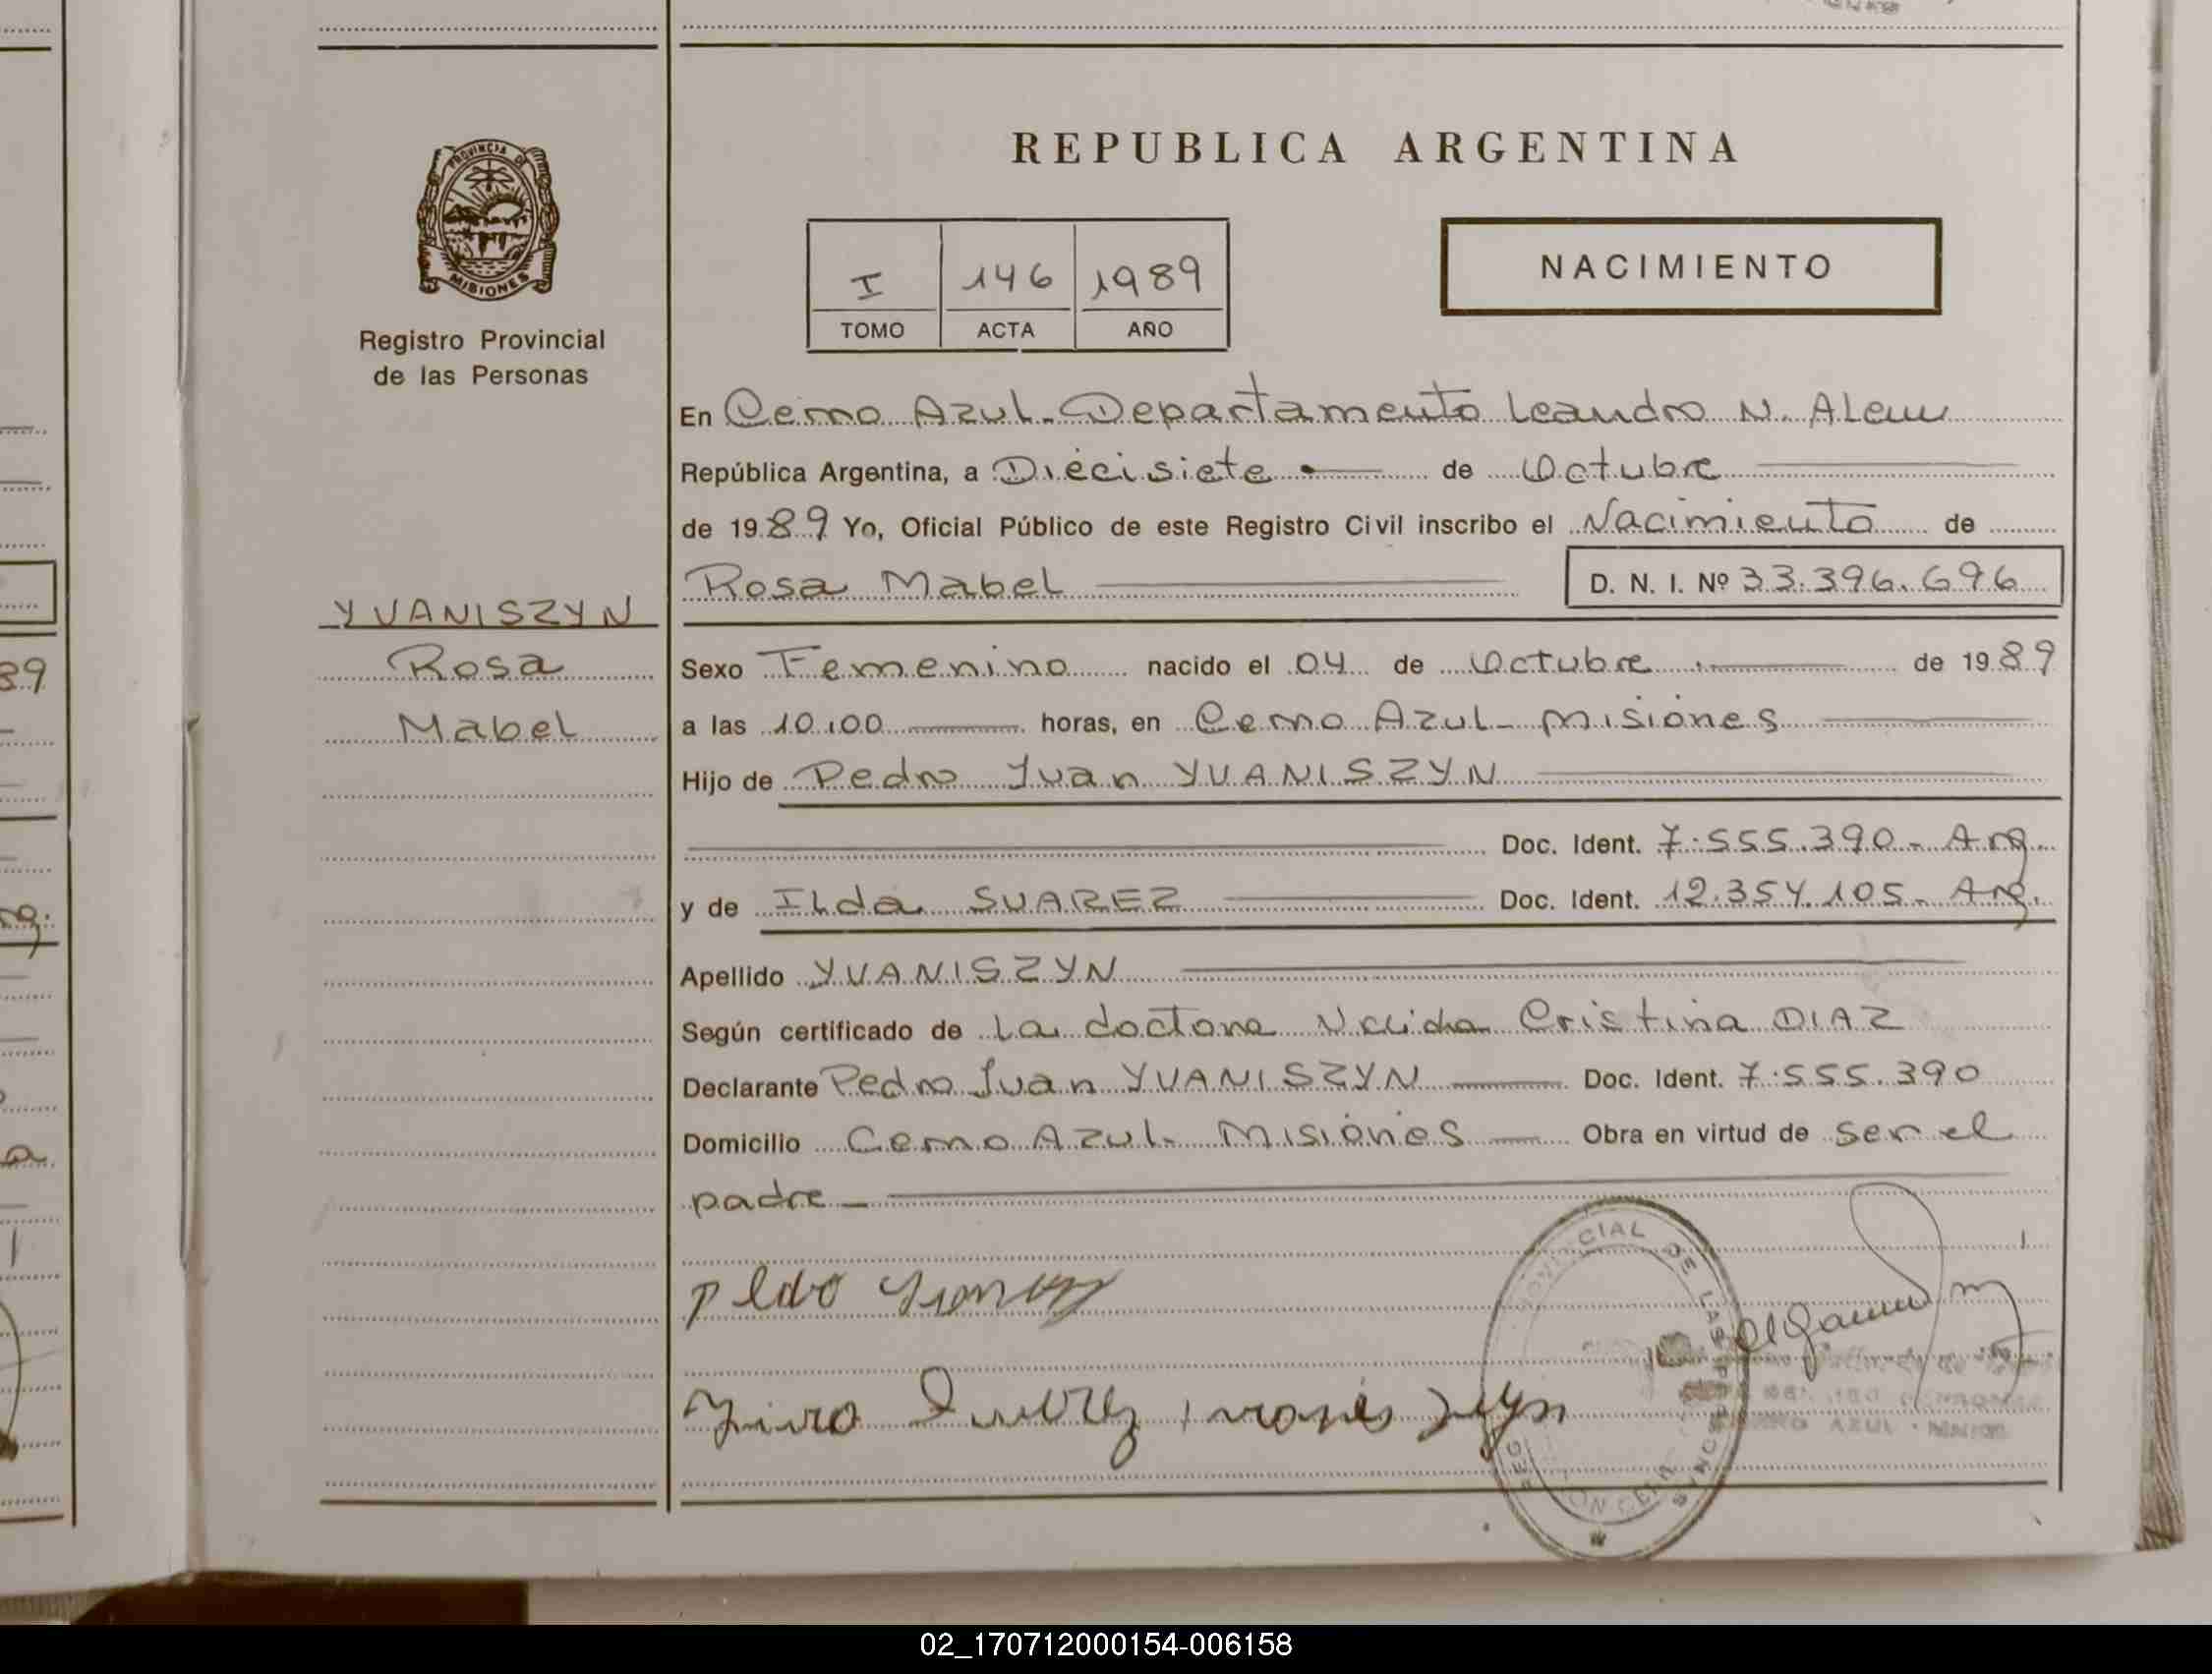 PROVINCIA DE
MISIONES
Registro Provincial
de las Personas
YVANISZYN
Rosa
Mabel
REPUBLICA ARGENTINA
I 146 1989
TOMO ACTA AÑO
NACIMIENTO
En Cerro Azul - Departamento Leandro N. Alem
República Argentina, a Diécisiete de Octubre
de 1989 Yo, Oficial Público de este Registro Civil inscribo el Nacimiento de
Rosa Mabel D. N. I. Nº 33.396.696
Sexo Femenino nacido el 04 de Octubre de 1989
a las 10:00 horas, en Cerro Azul - Misiones
Hijo de Pedro Juan YVANISZYN
Doc. Ident. 7.555.390 - Arg.
y de Ilda SUAREZ Doc. Ident. 12.354.105 - Arg.
Apellido YVANISZYN
Según certificado de La doctora Cristina DIAZ
Declarante Pedro Juan YVANISZYN Doc. Ident. 7.555.390
Domicilio Cerro Azul - Misiones Obra en virtud de ser el
padre
CIAL DE LAS PERSONAS
AZUL
89
02_170712000154-006158